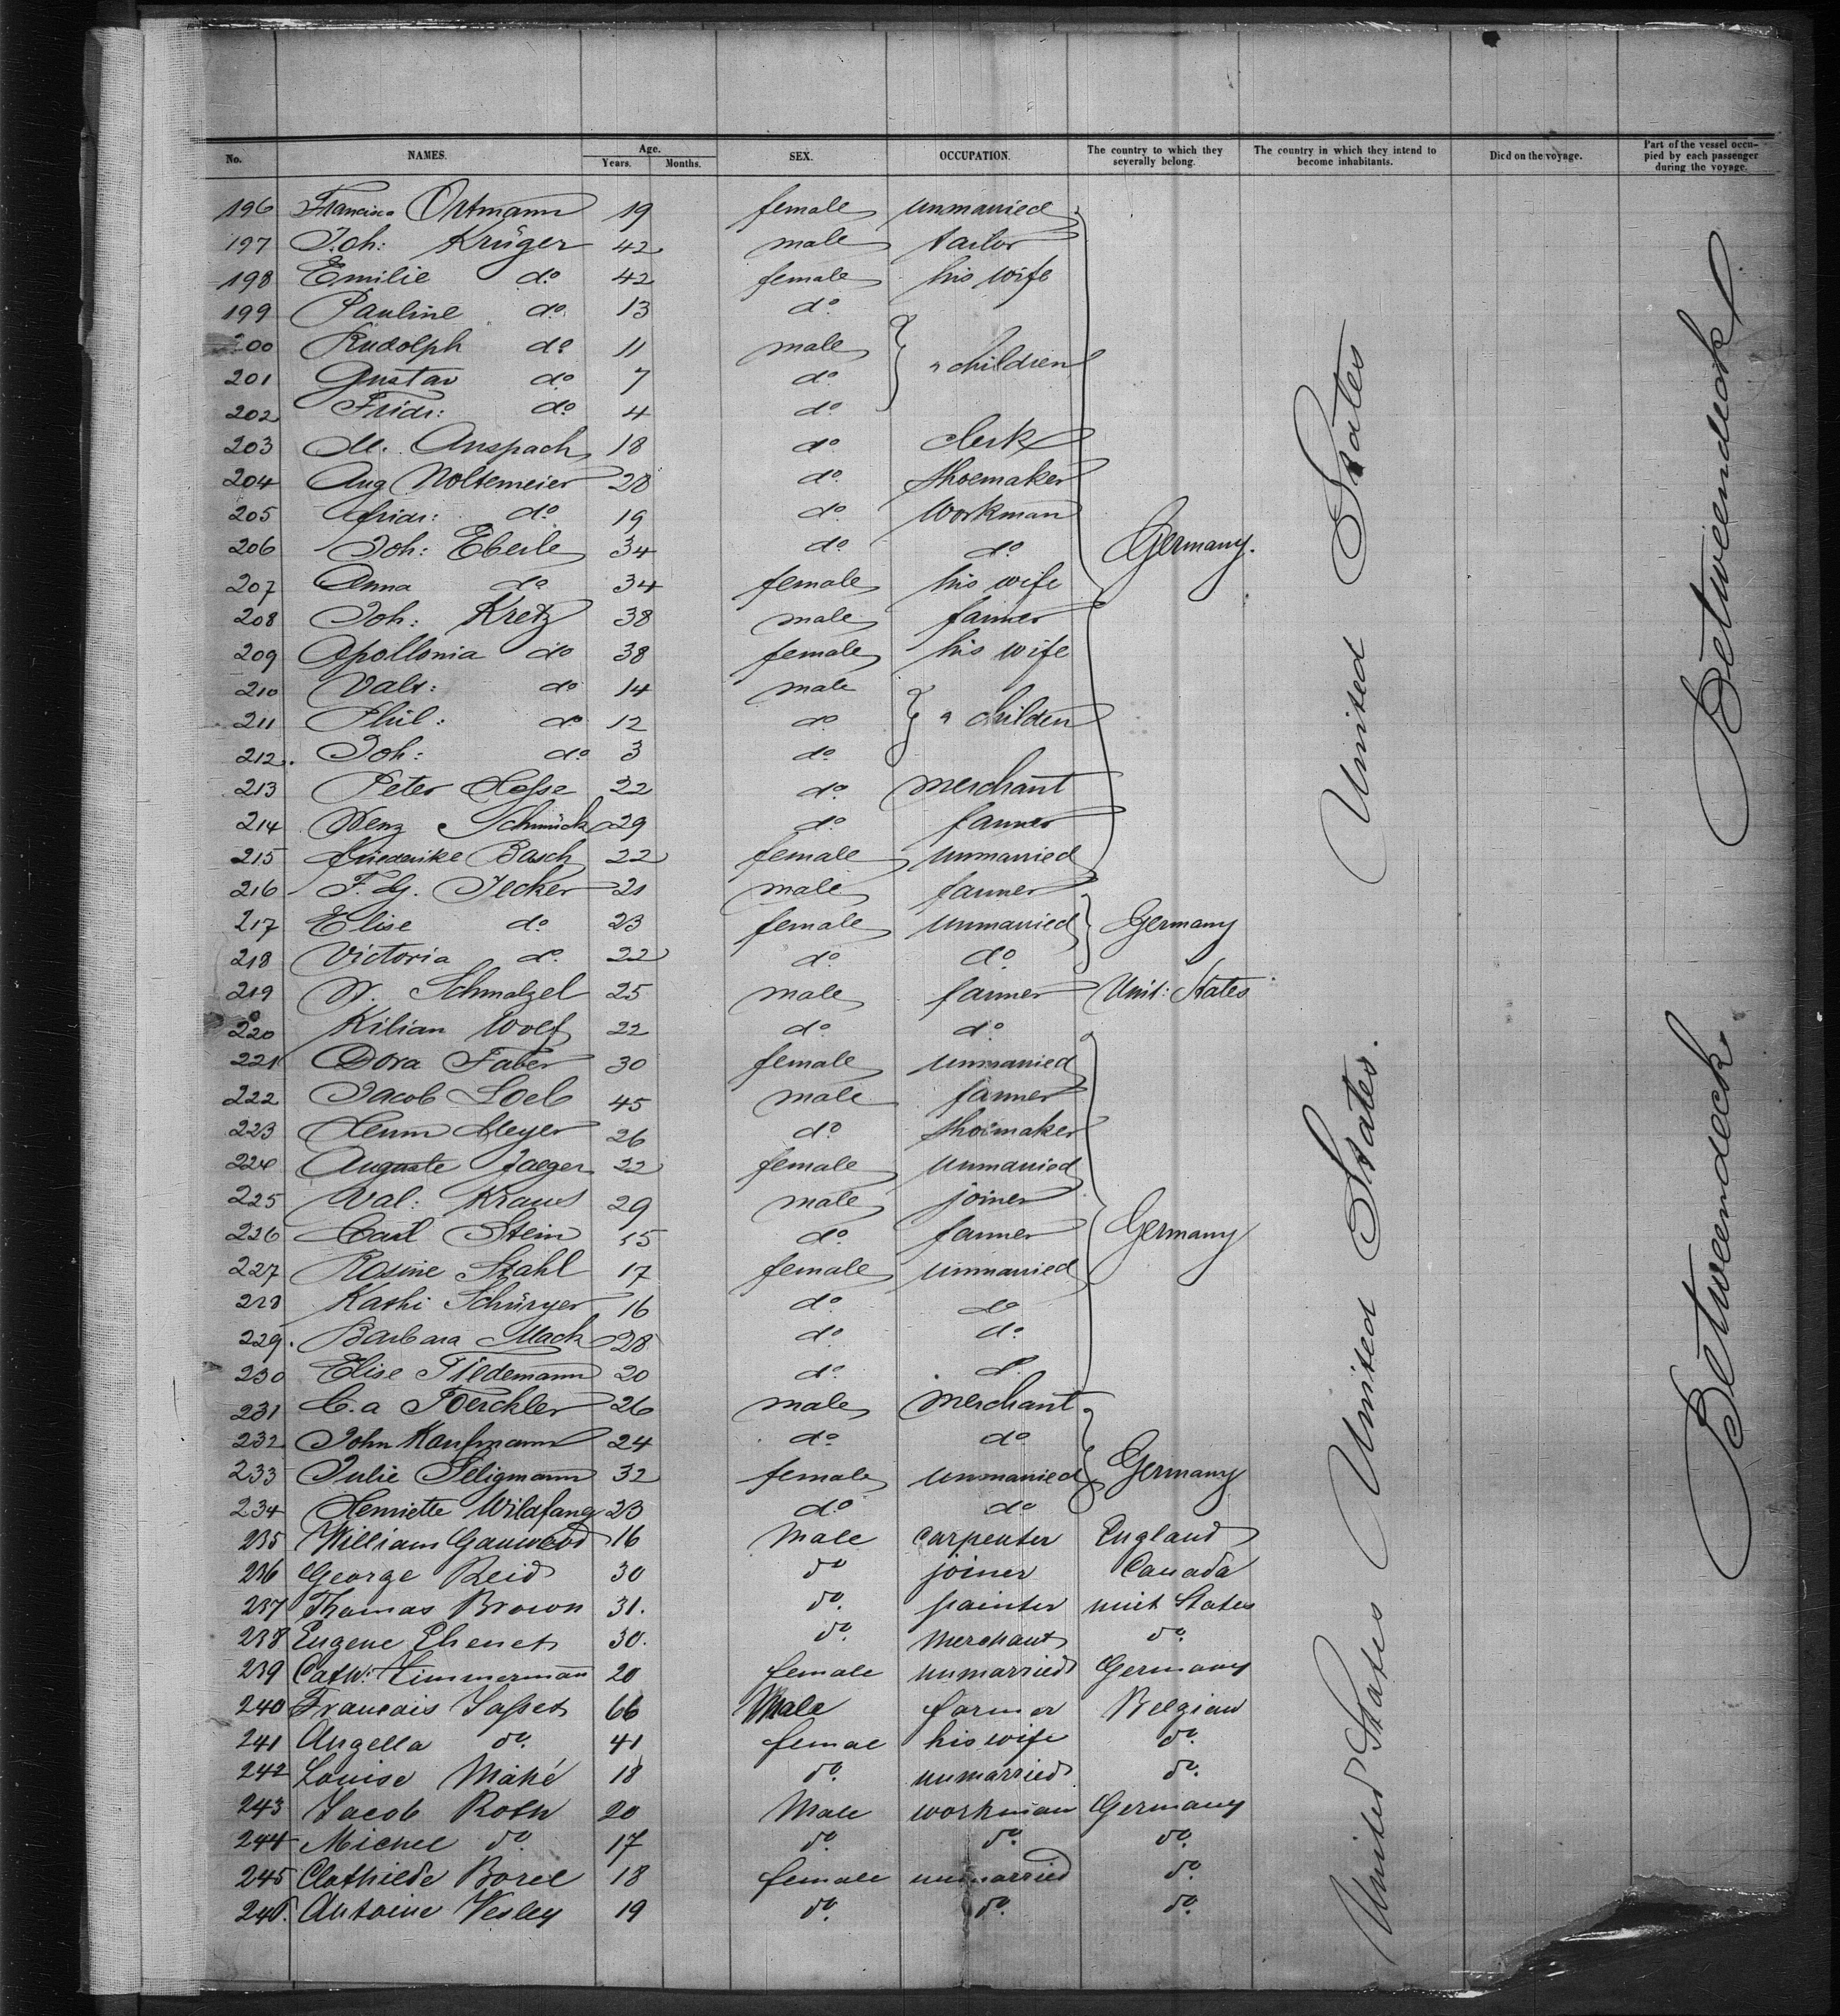 No. NAMES. Age. Years. Months. SEX. OCCUPATION. The country to which they severally belong. The country in which they intend to become inhabitants. Died on the voyage. Part of the vessel occupied by each passenger during the voyage.
196 Francisca Ortmann 19 female unmarried
197 Joh: Krüger 42 male tailor
198 Emilie do 42 female his wife
199 Pauline do 13 do
200 Rudolph do 11 male
201 Gustav do 7 do " children
202 Fridr: do 4 do
203 M. Anspach 18 do clerk
204 Aug Noltemeier 28 do shoemaker
205 fridr: do 19 do workman
206 Joh: Eberle 34 do do Germany.
207 Anna do 34 female his wife
208 Joh: Kretz 38 male farmer
209 Apollonia do 38 female his wife
210 Valt: do 14 male
211 Phil: do 12 do " children
212. Joh: do 3 do
213 Peter 22 do merchant
214 Wenz Schmück 29 do farmer
215 friederike Basch 22 female unmarried
216 F. G. Jecker 21 male farmer
217 Elise do 23 female unmarried Germany
218 Victoria do 22 do do
219 W. Schmalzel 25 male farmer Unit: States
220 Kilian Wolf 22 do do
221 Dora Faber 30 female unmarried
222 Jacob Loeb 45 male farmer
223 Herm Meyer 26 do shoemaker
224 Auguste Jaeger 22 female unmarried
225 Val: Kraus 29 male joiner
226 Carl Stein 15 do farmer Germany
227 Rosine Stahl 17 female unmarried
228 Kathi Schüryer 16 do do
229. Barbara Mack 28 do do
230 Elise Tiedemann 20 do do
231 C. a Foerchler 26 male merchant
232 John Kaufmann 24 do do
233 Julie Seligmann 32 female unmarried Germany
234 Henriette Wildfang 23 do do
235 William 16 Male carpenter England
236 George Reid 30 do joiner Canada
237 Thomas Brown 31. do. painter unit States
238 Eugene Chenet 30. do. Merchant do.
239 Cath: Zimmermann 20 female unmarried Germany
240 Francois Sasset 66 Male farmer Belgian
241 Angella do. 41 femae his wife do.
242 Louise Mahé 18 do. unmarried do.
243 Jacob Roth 20 Male workman Germany
244 Michel do. 17 do. do. do.
245 Clothilde Borel 18 female unmarried do.
246. Antoine Vesley 19 do. do. do.
United States
United States.
United States
Betweendeck
Betweendeck